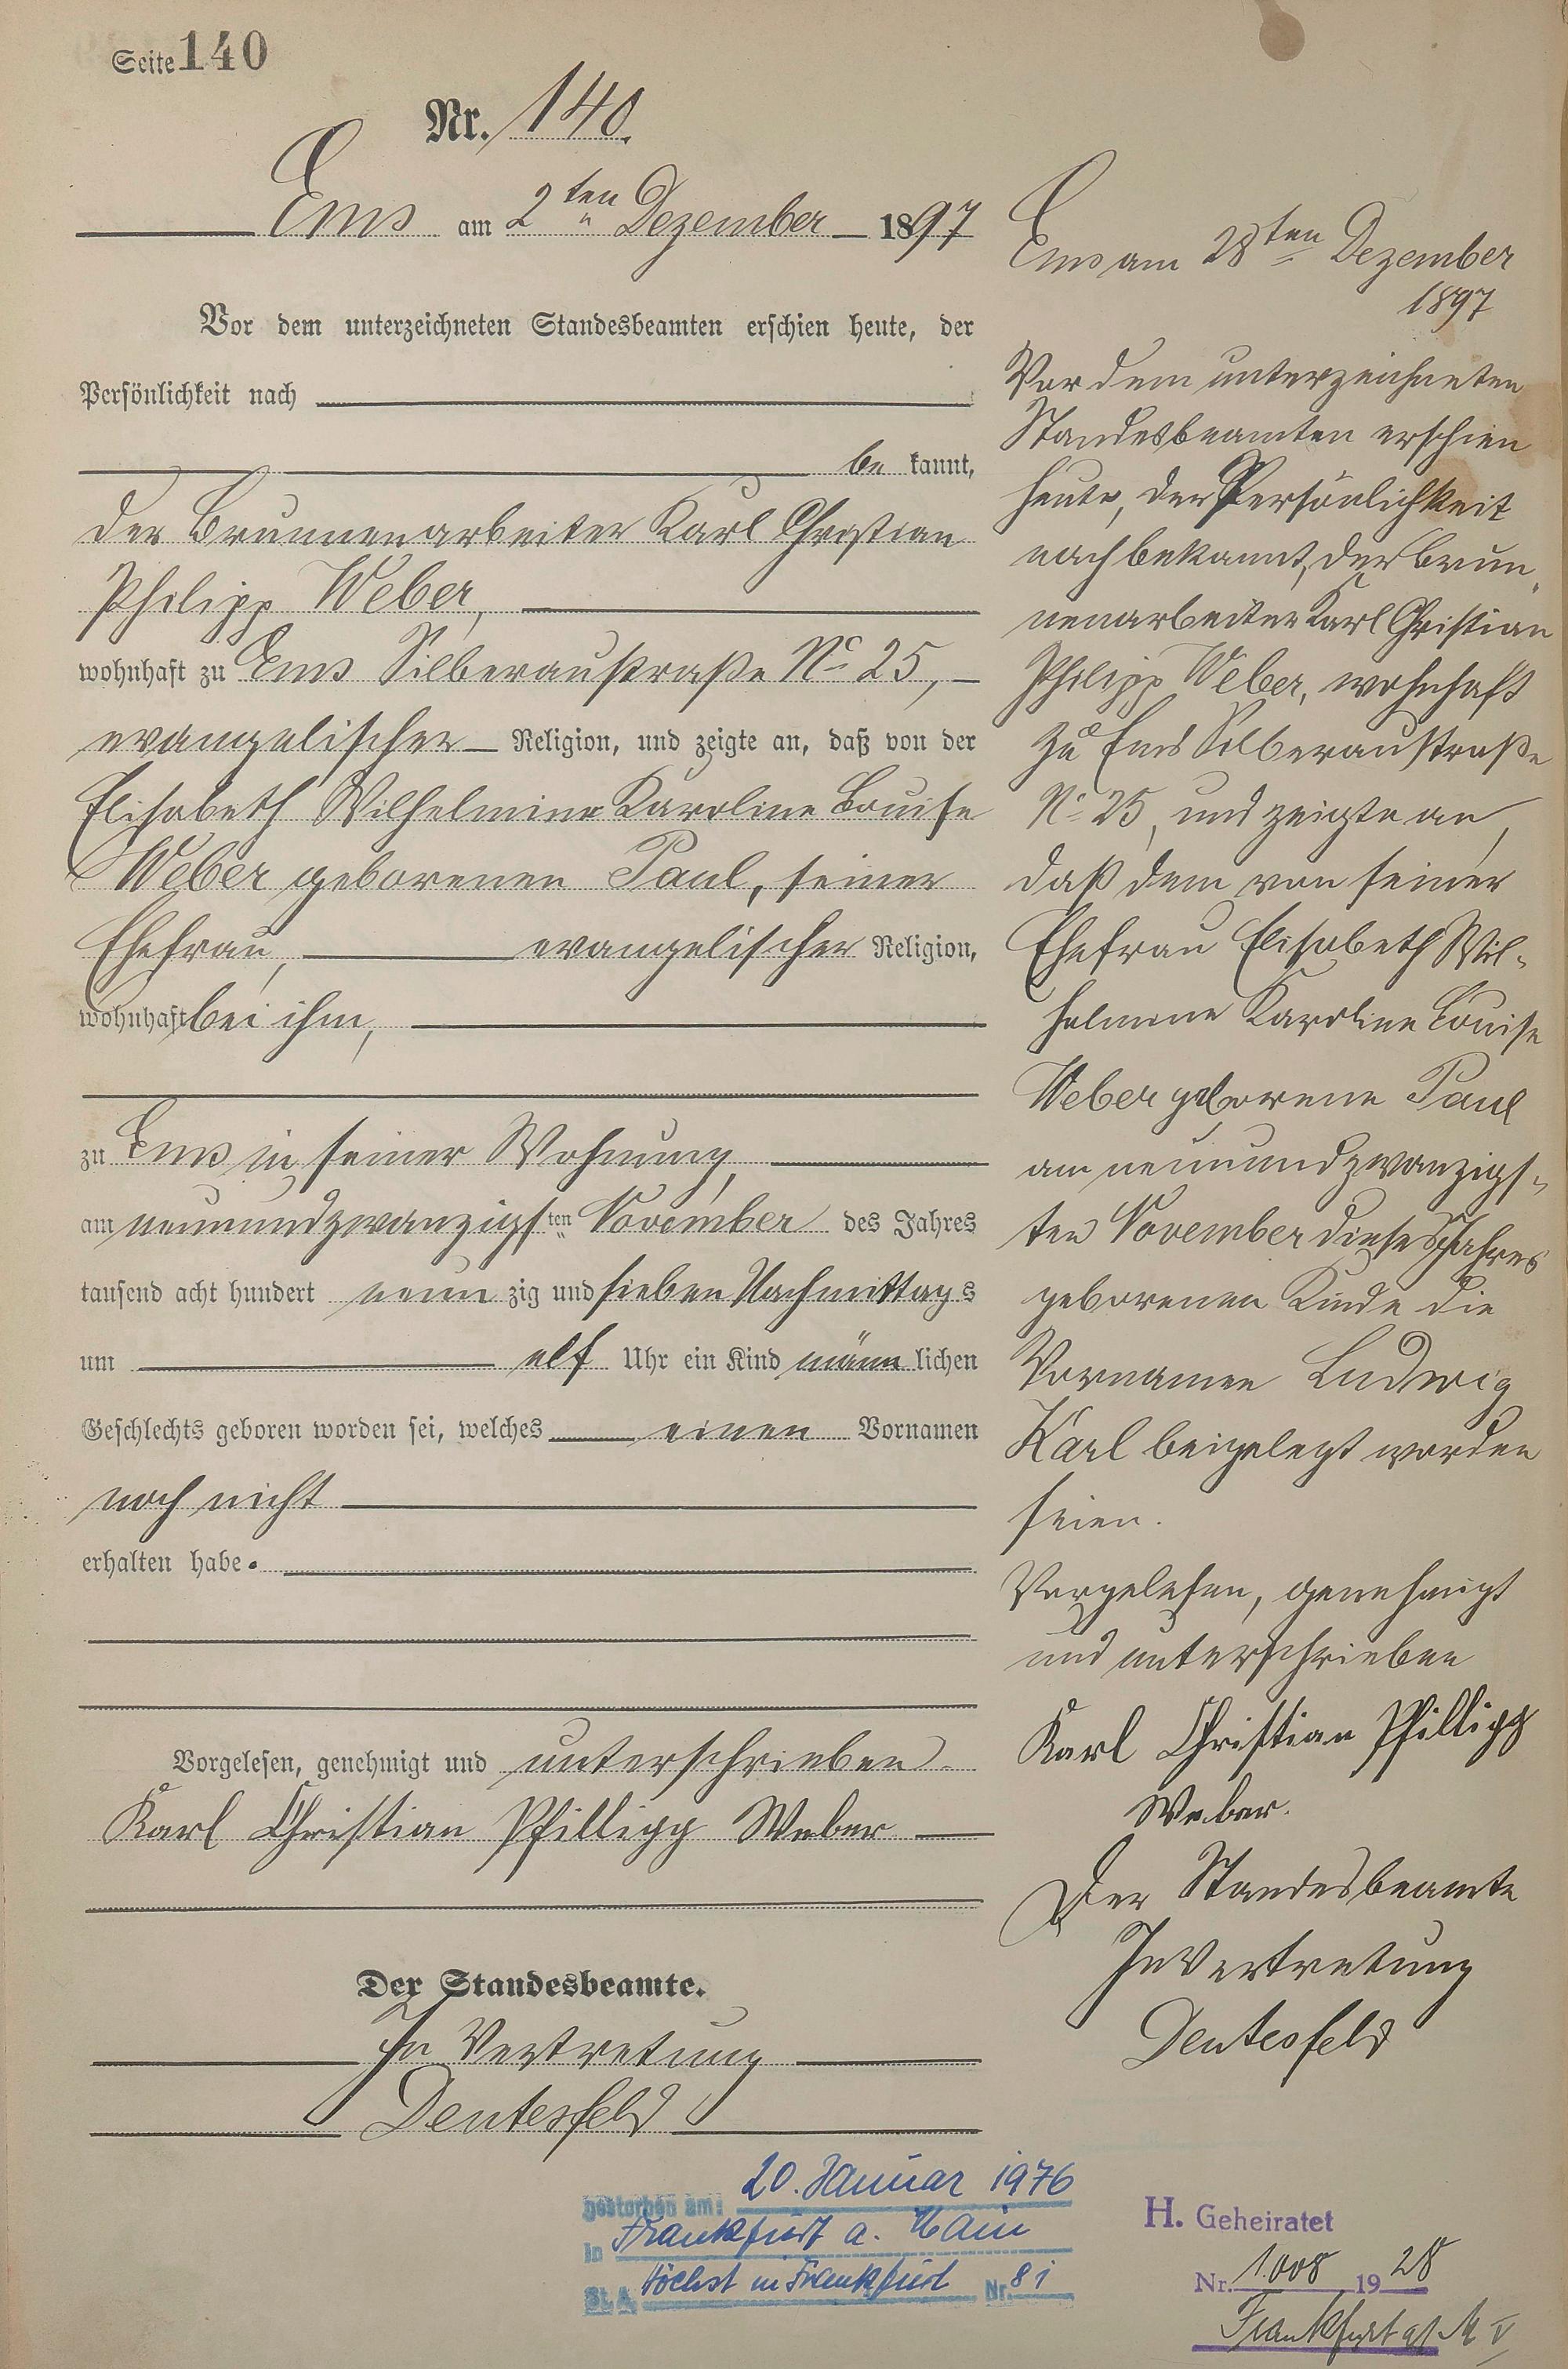 Seite 140
Nr. 140.
Ems am 2ten Dezember 1897
Vor dem unterzeichneten Standesbeamten erschien heute, der
Persönlichkeit nach
be kannt,
der Brunnenarbeiter Karl Christian
Philipp Weber,
wohnhaft zu Ems Silberaustraße No 25,
evangelischer Religion, und zeigte an, daß von der
Elisabeth Wilhelmine Karoline Louise
Weber geborenen Paul, seiner
Ehefrau, evangelischer Religion,
wohnhaft bei ihm,
zu Ems in seiner Wohnung,
am neunundzwanzigsten November des Jahres
tausend acht hundert neun zig und sieben Nachmittags
um elf Uhr ein Kind männ lichen
Geschlechts geboren worden sei, welches einen Vornamen
noch nicht
erhalten habe.
Vorgelesen, genehmigt und unterschrieben.
Karl Christian Phillipp Weber
Der Standesbeamte.
In Vertretung
Dentesfeld
Ems am 28ten Dezember
1897
Vor dem unterzeichneten
Standesbeamten erschien
heute, der Persönlichkeit
nach bekannt, der Brun-
nenarbeiter Karl Christian
Philipp Weber, wohnhaft
zu Ems Silberaustraße
No 25, und zeigte an,
daß dem von seiner
Ehefrau Elisabeth Wil-
helmine Karoline Louise
Weber geborene Paul
am neunundzwanzigs-
ten November dieses Jahres
geborenen Kinde die
Vornamen Ludwig
Karl beigelegt worden
seien.
Vorgelesen, genehmigt
und unterschrieben
Karl Christian Phillipp
Weber.
Der Standesbeamte
In Vertretung
Dentesfeld
gestorben am: 20. Januar 1976
in Frankfurt a. Main
St. A. Höchst in Frankfurt Nr. 81
H. Geheiratet
Nr. 1.008 19 28
Frankfurt a/M V